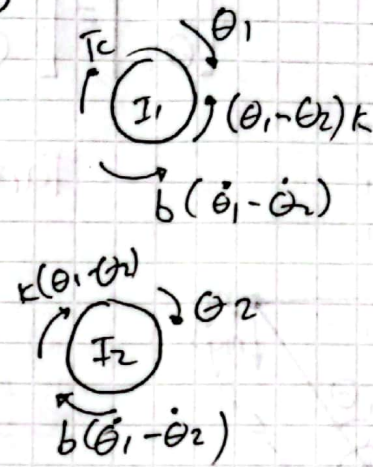 Tc
θ₁
I₁
(θ₁-θ₂)k
b(θ̇₁-θ̇₂)
k(θ₁-θ₂)
θ₂
I₂
b(θ̇₁-θ̇₂)